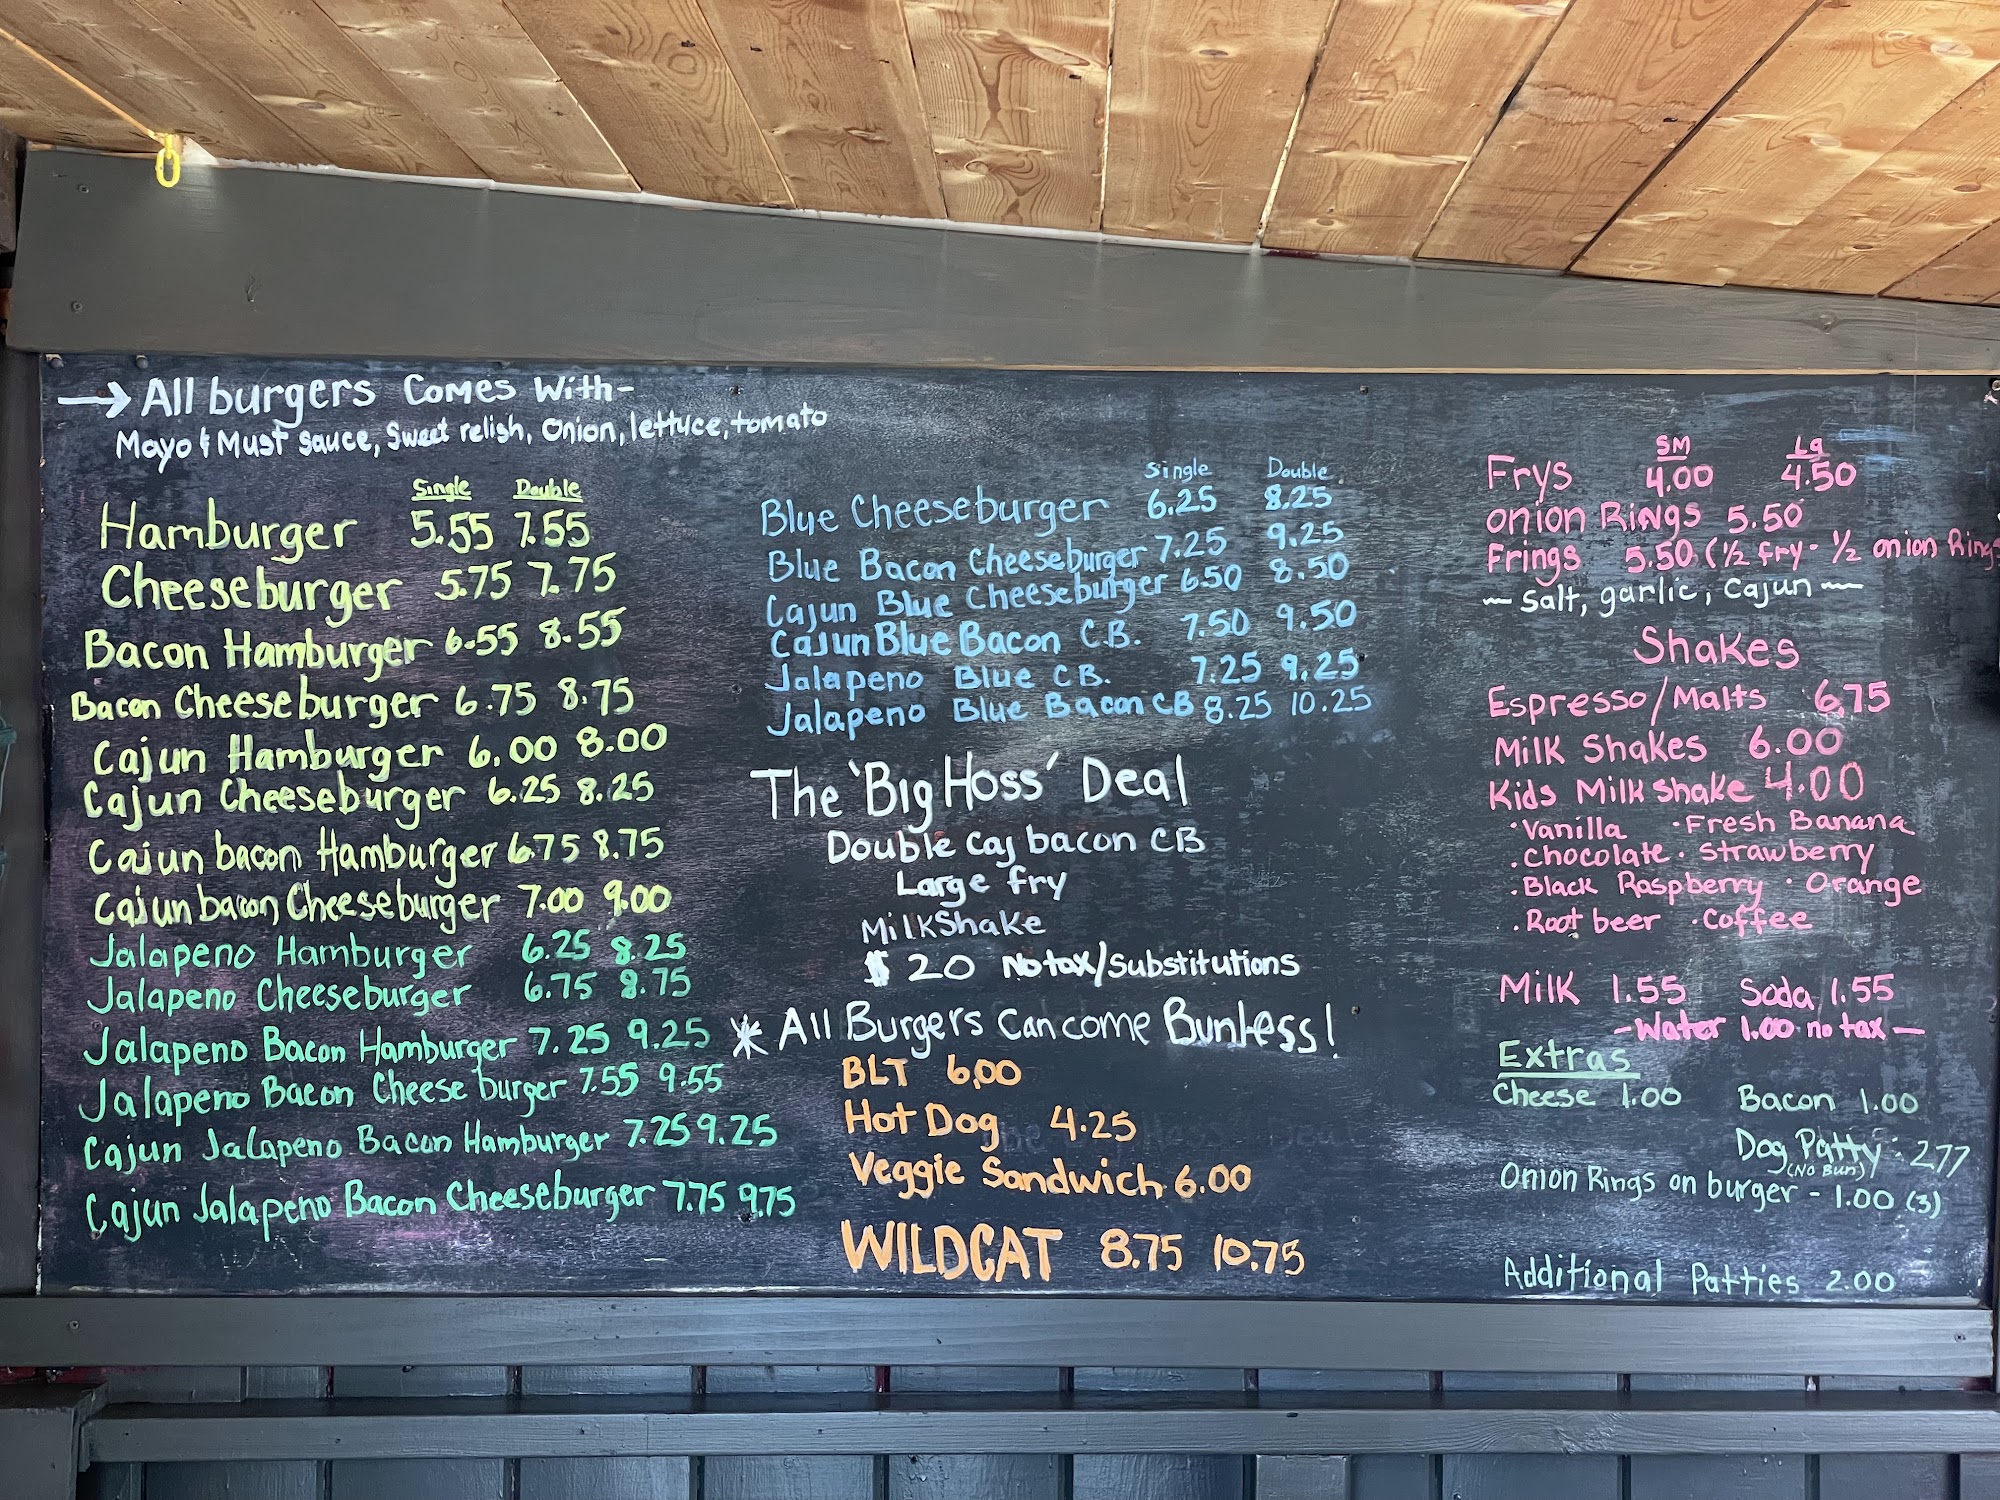 → All burgers Comes With-
Mayo & Must sauce, Sweet relish, onion, lettuce, tomato
Single Double
Hamburger 5.55 7.55
Cheeseburger 5.75 7.75
Bacon Hamburger 6.55 8.55
Bacon Cheeseburger 6.75 8.75
Cajun Hamburger 6.00 8.00
Cajun Cheeseburger 6.25 8.25
Cajun bacon Hamburger 6.75 8.75
Cajun bacon Cheeseburger 7.00 9.00
Jalapeno Hamburger 6.25 8.25
Jalapeno Cheeseburger 6.75 8.75
Jalapeno Bacon Hamburger 7.25 9.25
Jalapeno Bacon Cheese burger 7.55 9.55
Cajun Jalapeno Bacon Hamburger 7.25 9.25
Cajun Jalapeno Bacon Cheeseburger 7.75 9.75
Single Double
Blue Cheeseburger 6.25 8.25
Blue Bacon Cheeseburger 7.25 9.25
Cajun Blue Cheeseburger 6.50 8.50
Cajun Blue Bacon C.B. 7.50 9.50
Jalapeno Blue C.B. 7.25 9.25
Jalapeno Blue Bacon CB 8.25 10.25
The 'Big Hoss' Deal
Double Caj bacon CB
Large fry
MilkShake
$ 20 No tax/Substitutions
* All Burgers Can come Bunless!
BLT 6.00
Hot Dog 4.25
Veggie Sandwich 6.00
WILDCAT 8.75 10.75
SM Lg
Frys 4.00 4.50
Onion Rings 5.50
Frings 5.50 (1/2 fry - 1/2 onion Rings
~ Salt, garlic, Cajun ~
Shakes
Espresso/Malts 6.75
Milk Shakes 6.00
Kids Milk Shake 4.00
·Vanilla ·Fresh Banana
·Chocolate ·Strawberry
·Black Raspberry ·Orange
·Root beer ·Coffee
Milk 1.55 Soda 1.55
-Water 1.00 no tax-
Extras
Cheese 1.00 Bacon 1.00
Dog Patty - 2.77
(No Bun)
Onion Rings on burger - 1.00 (3)
Additional Patties 2.00